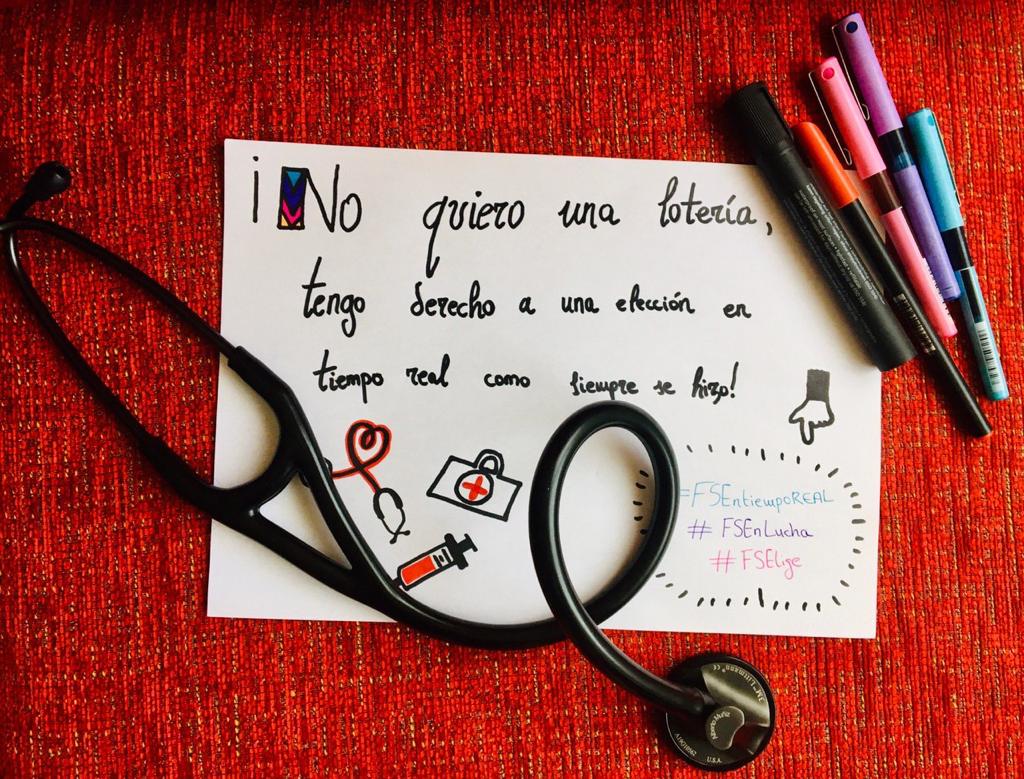 ¡No quiero una lotería,
tengo derecho a una elección en
tiempo real como siempre se hizo!
#FSEntiempoREAL
# FSEnLucha
# FSElige
3M™ Littmann®
U.S.A.